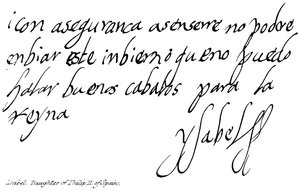 i con aseguranca asenserre no podre
enbiar este inbierno que no puedo
halar buenos cabalos para la
reyna
ysabel
Isabel, Daughter of Philip II of Spain.